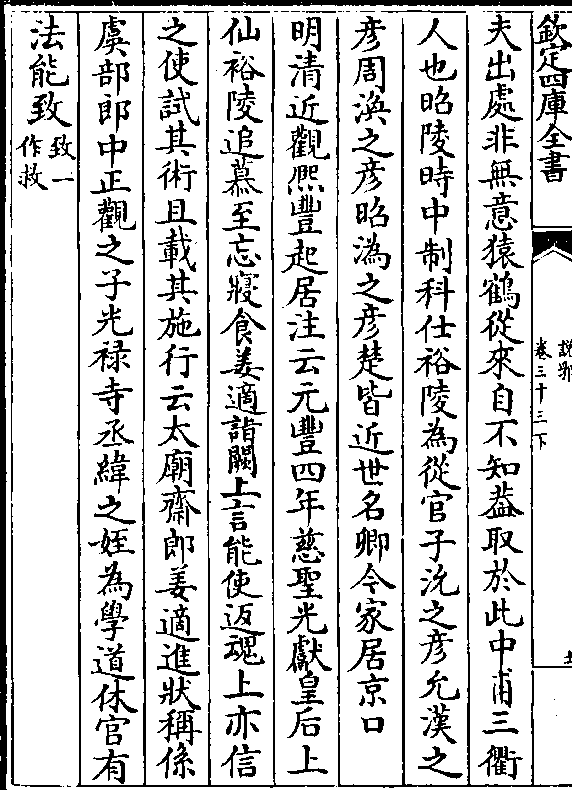 欽定四庫全書
說郛
卷三十三下
夫出處非無意猿鶴從來自不知葢取於此中甫三衢
人也昭陵時中制科仕裕陵為從官子沇之彦允漢之
彦周渙之彦昭溈之彦楚皆近世名卿今家居京口
明清近觀熙豐起居注云元豐四年慈聖光獻皇后上
仙裕陵追慕至忘寢食姜適詣闕上言能使返魂上亦信
之使試其術且載其施行云太廟齋郎姜適進狀稱係
虞部郎中正觀之子光禄寺丞緯之姪為學道休官有
法能致
致一
作救